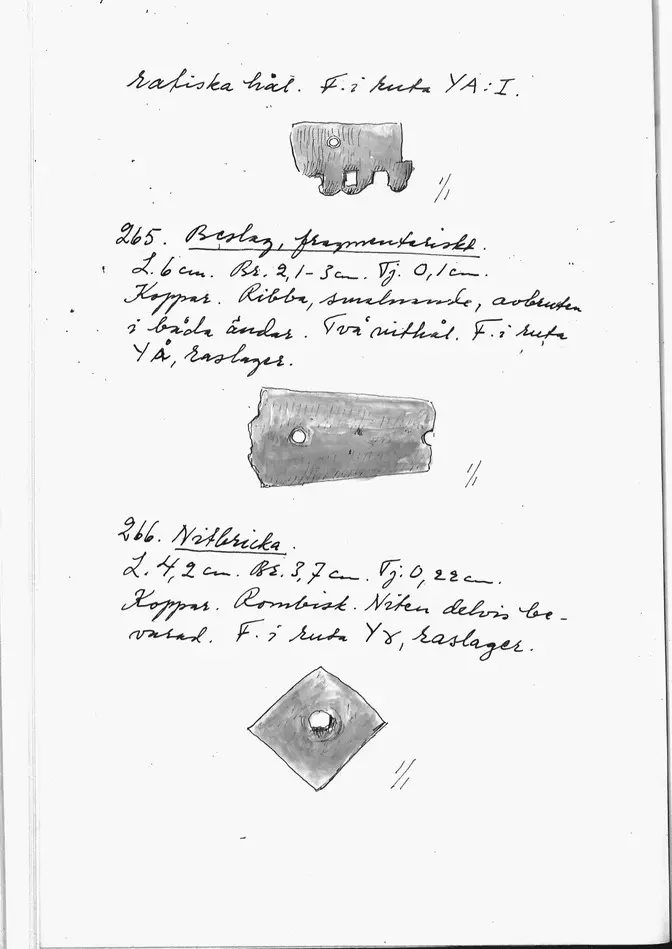 ratiska hål. F. i ruta YA:I.
1/1
265. Beslag, fragmentariskt.
L. 6 cm. Br. 2,1-3 cm. Tj. 0,1 cm.
Koppar. Ribba, smalnande, avbruten
i båda ändar. Två nithål. F. i ruta
YÅ, raslager.
1/1
266. Nitbricka.
L. 4,2 cm. Br. 3,7 cm. Tj. 0,22 cm.
Koppar. Rombisk. Niten delvis be-
varad. F. i ruta Y, raslager.
1/1